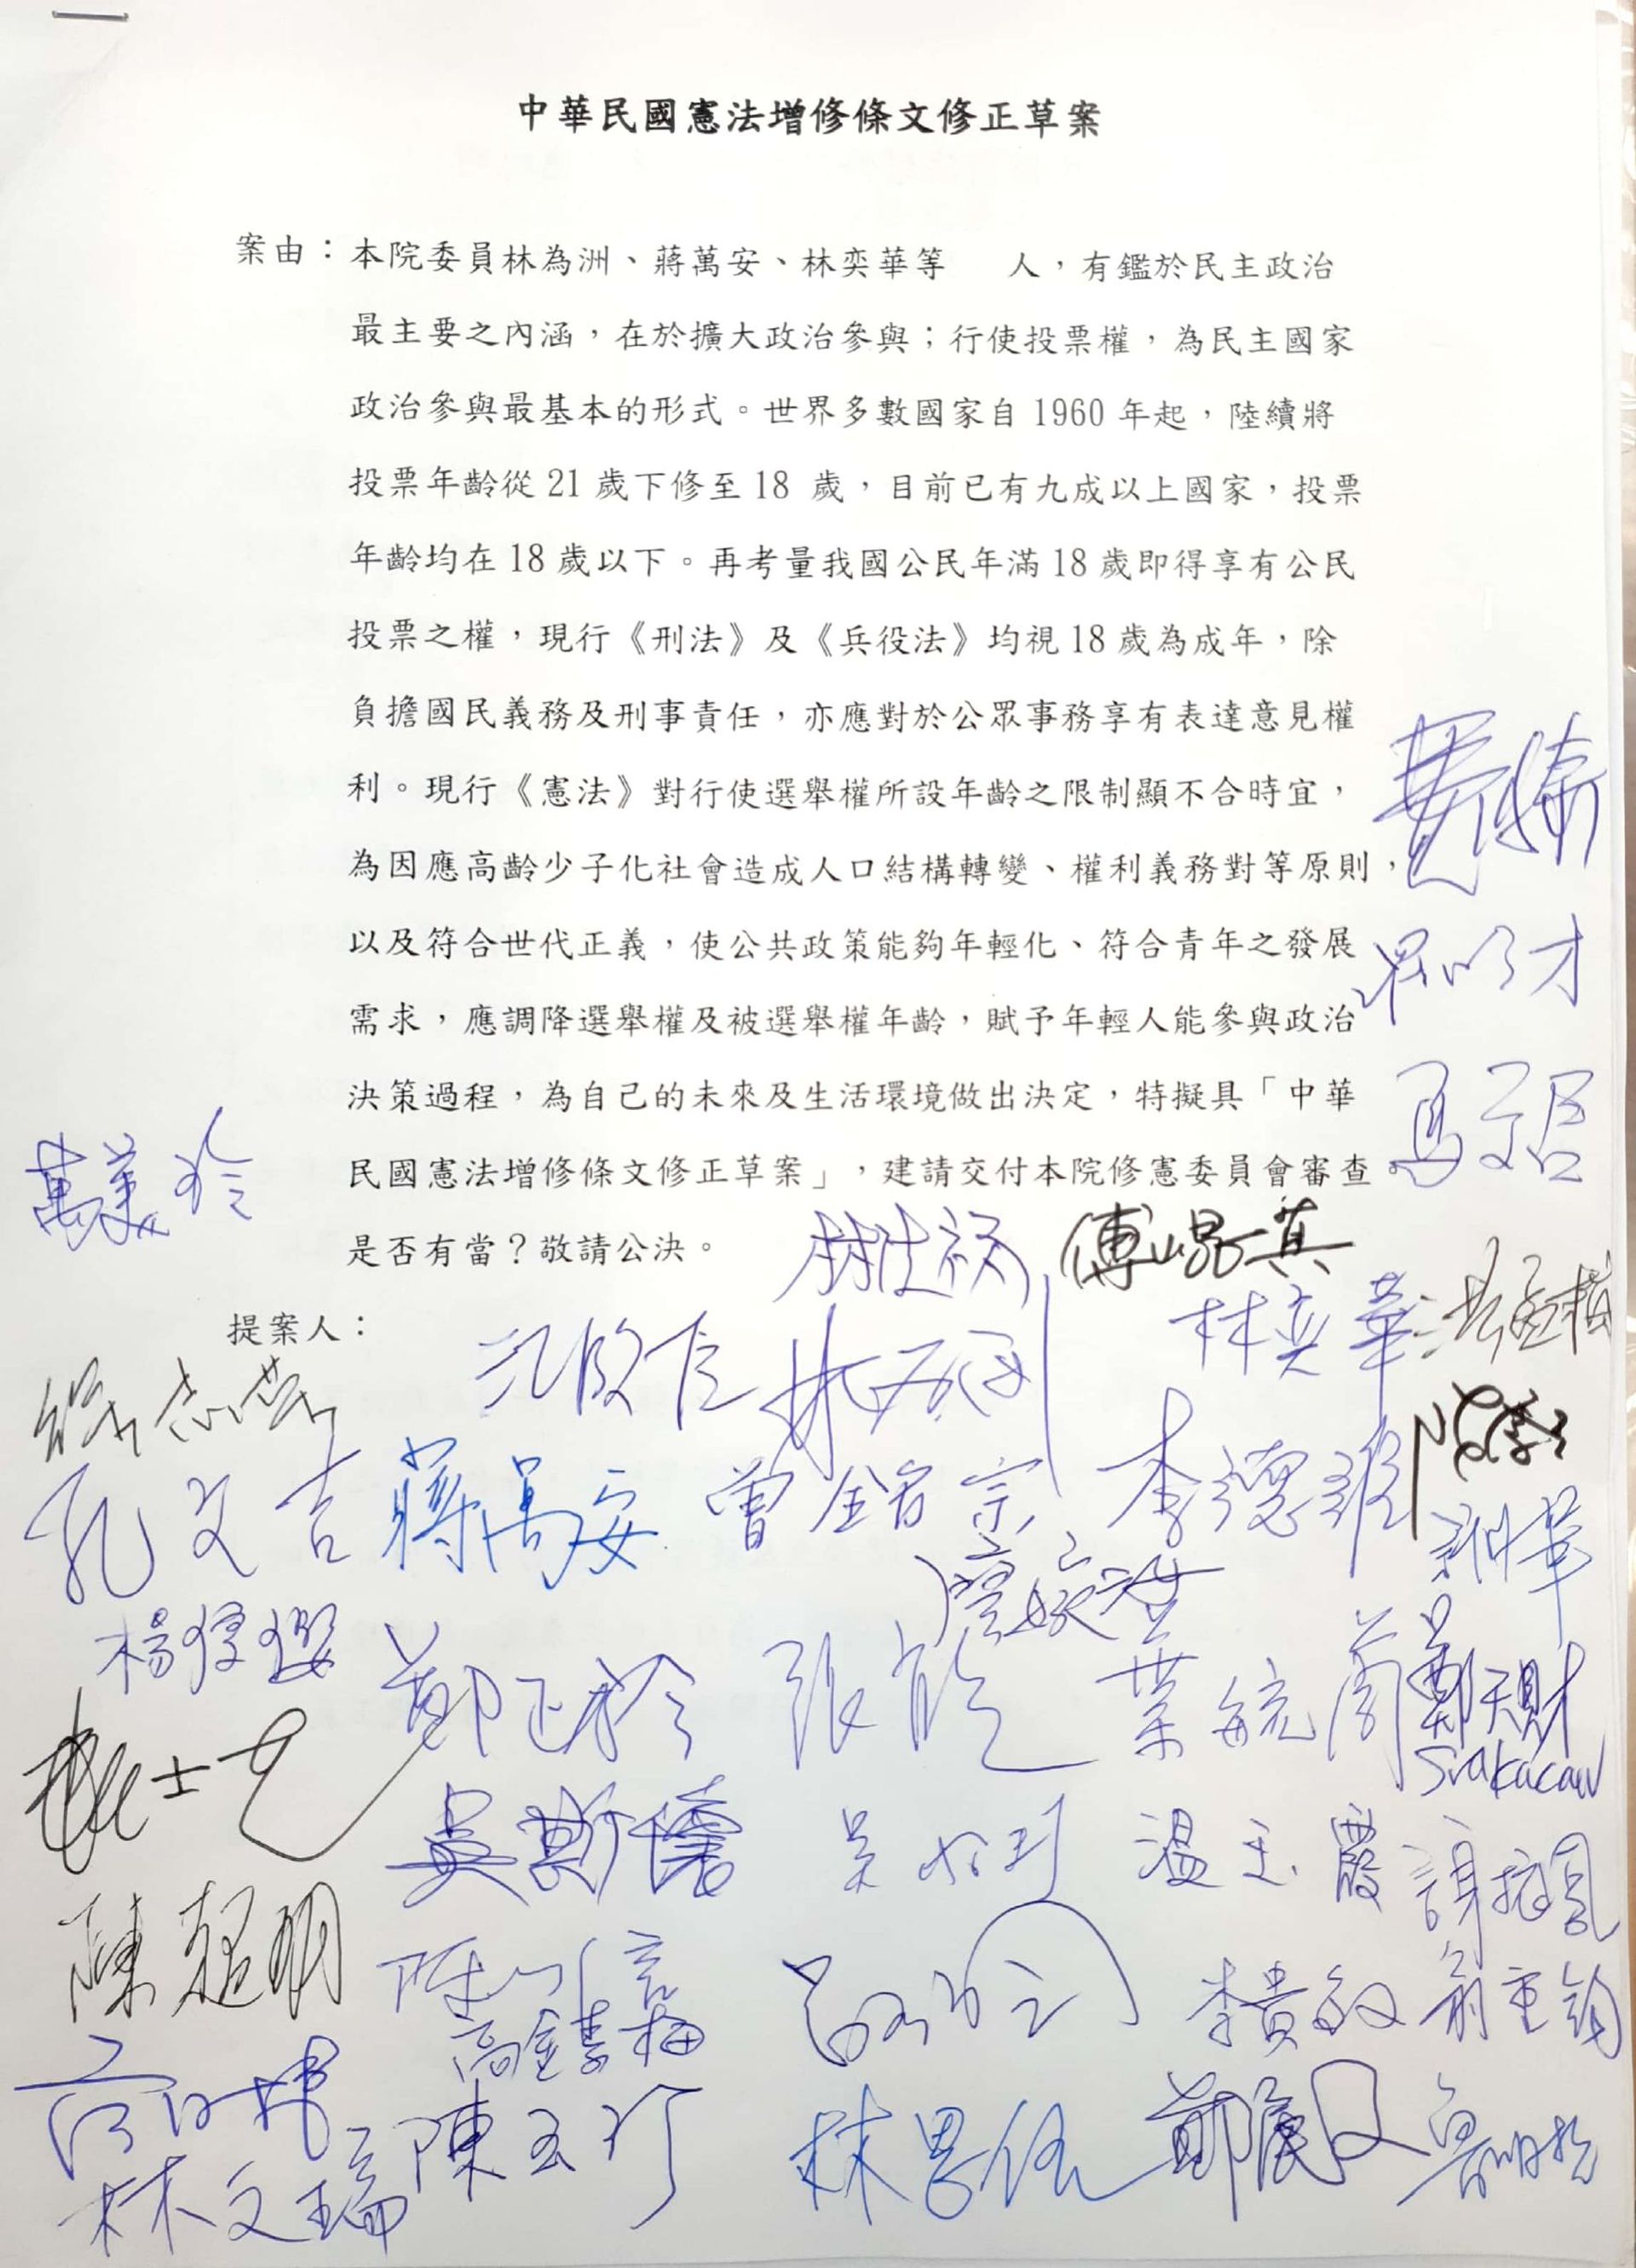 中華民國憲法增修條文修正草案
案由：本院委員林為洲、蔣萬安、林奕華等　人，有鑑於民主政治
最主要之內涵，在於擴大政治參與；行使投票權，為民主國家
政治參與最基本的形式。世界多數國家自 1960 年起，陸續將
投票年齡從 21 歲下修至 18 歲，目前已有九成以上國家，投票
年齡均在 18 歲以下。再考量我國公民年滿 18 歲即得享有公民
投票之權，現行《刑法》及《兵役法》均視 18 歲為成年，除
負擔國民義務及刑事責任，亦應對於公眾事務享有表達意見權
利。現行《憲法》對行使選舉權所設年齡之限制顯不合時宜，
為因應高齡少子化社會造成人口結構轉變、權利義務對等原則，
以及符合世代正義，使公共政策能夠年輕化、符合青年之發展
需求，應調降選舉權及被選舉權年齡，賦予年輕人能參與政治
決策過程，為自己的未來及生活環境做出決定，特擬具「中華
民國憲法增修條文修正草案」，建請交付本院修憲委員會審查
是否有當？敬請公決。
提案人：
萬美玲
傅崐萁
林奕華
徐志榮
孔文吉
蔣萬安
曾銘宗
李德維
楊瓊瓔
鄭正鈐
葉毓蘭
鄭天財
Sra Kacaw
吳斯懷
吳怡玎
溫玉霞
謝衣鳳
陳超明
高金素梅
李貴敏
翁重鈞
陳玉珍
林思銘
鄭麗文
魯明哲
林文瑞